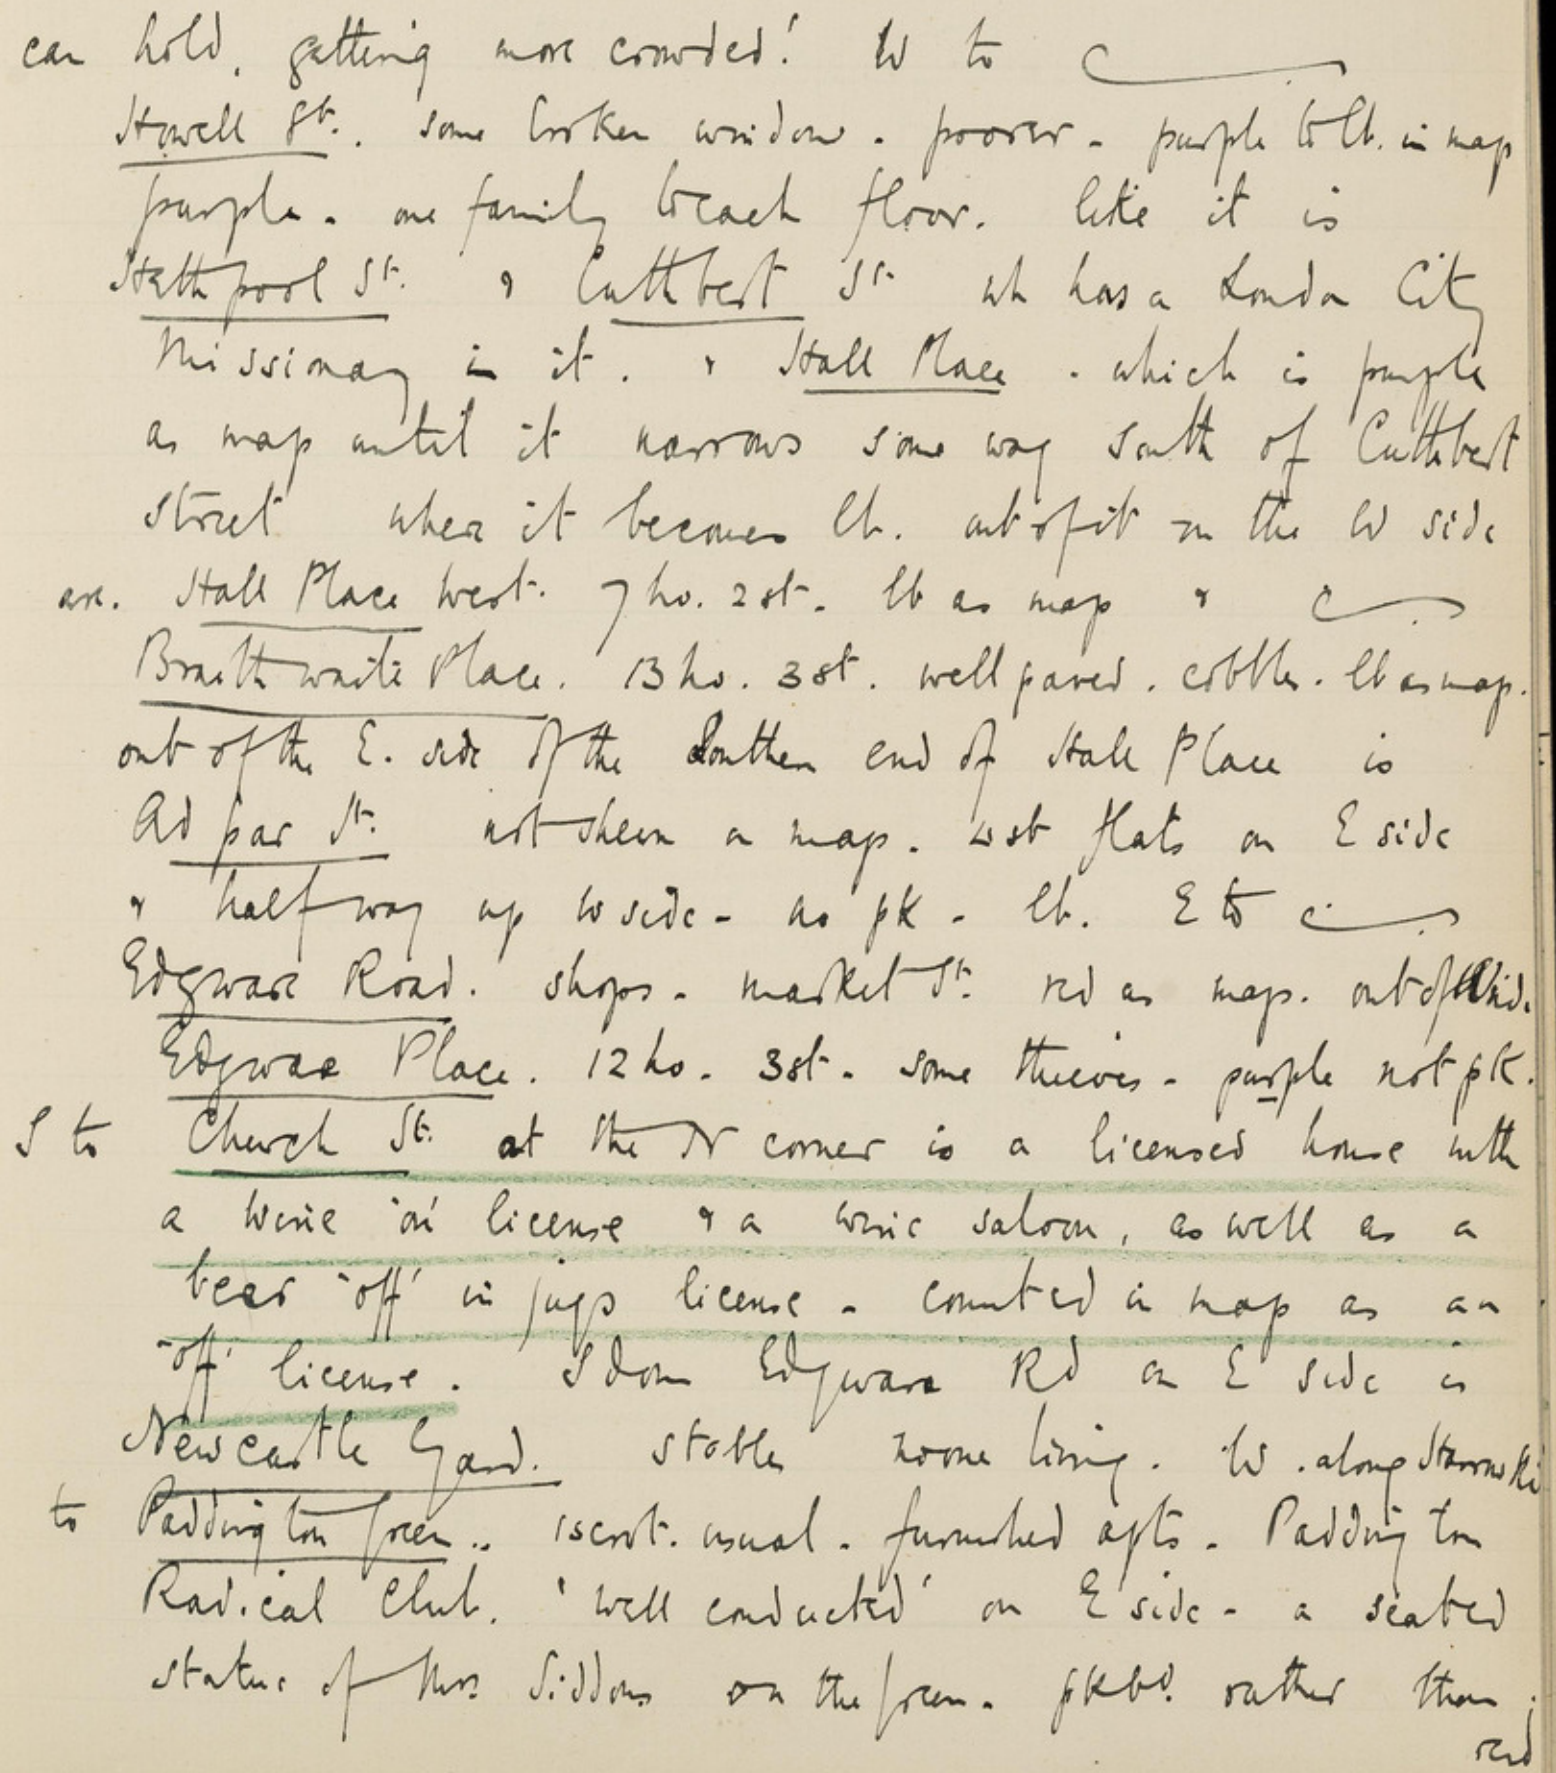 can hold, getting more crowded! W to
Howell St. some broken windows - poorer - purple to lb. in map
purple - one family to each floor. like it is
Hethpool St. & Cuthbert St wh has a London City
Missionary in it. & Hall Place - which is purple
as map until it narrows some way south of Cuthbert
Street where it becomes lb. out of it on the W side
are. Hall Place West. 7 ho. 2 st. lb as map &
Braithwaite Place. 13 ho. 3 st. well paved. cobbles. lb as map.
out of the E. side of the Southern end of Hall Place is
Adpar St. not shewn on map. 4 st flats on E side
& half way up W side - as pk - lb. E to
Edgware Road. shops - market St. red as map. out of W side
Edgware Place. 12 ho. 3 st. some thieves - purple not pk.
S to Church St. at the N corner is a licensed house with
a wine 'on' license & a wine saloon, as well as a
beer 'off' in jugs license - counted in map as an
'off' license. S down Edgware Rd on E side is
Newcastle Yard. stables no one living. W. along Harrow Rd
to Paddington Green.. usual - furnished apts - Paddington
Radical Club. 'well conducted' on E side - a seated
statue of Mrs Siddons on the green. pkbd. rather than
red